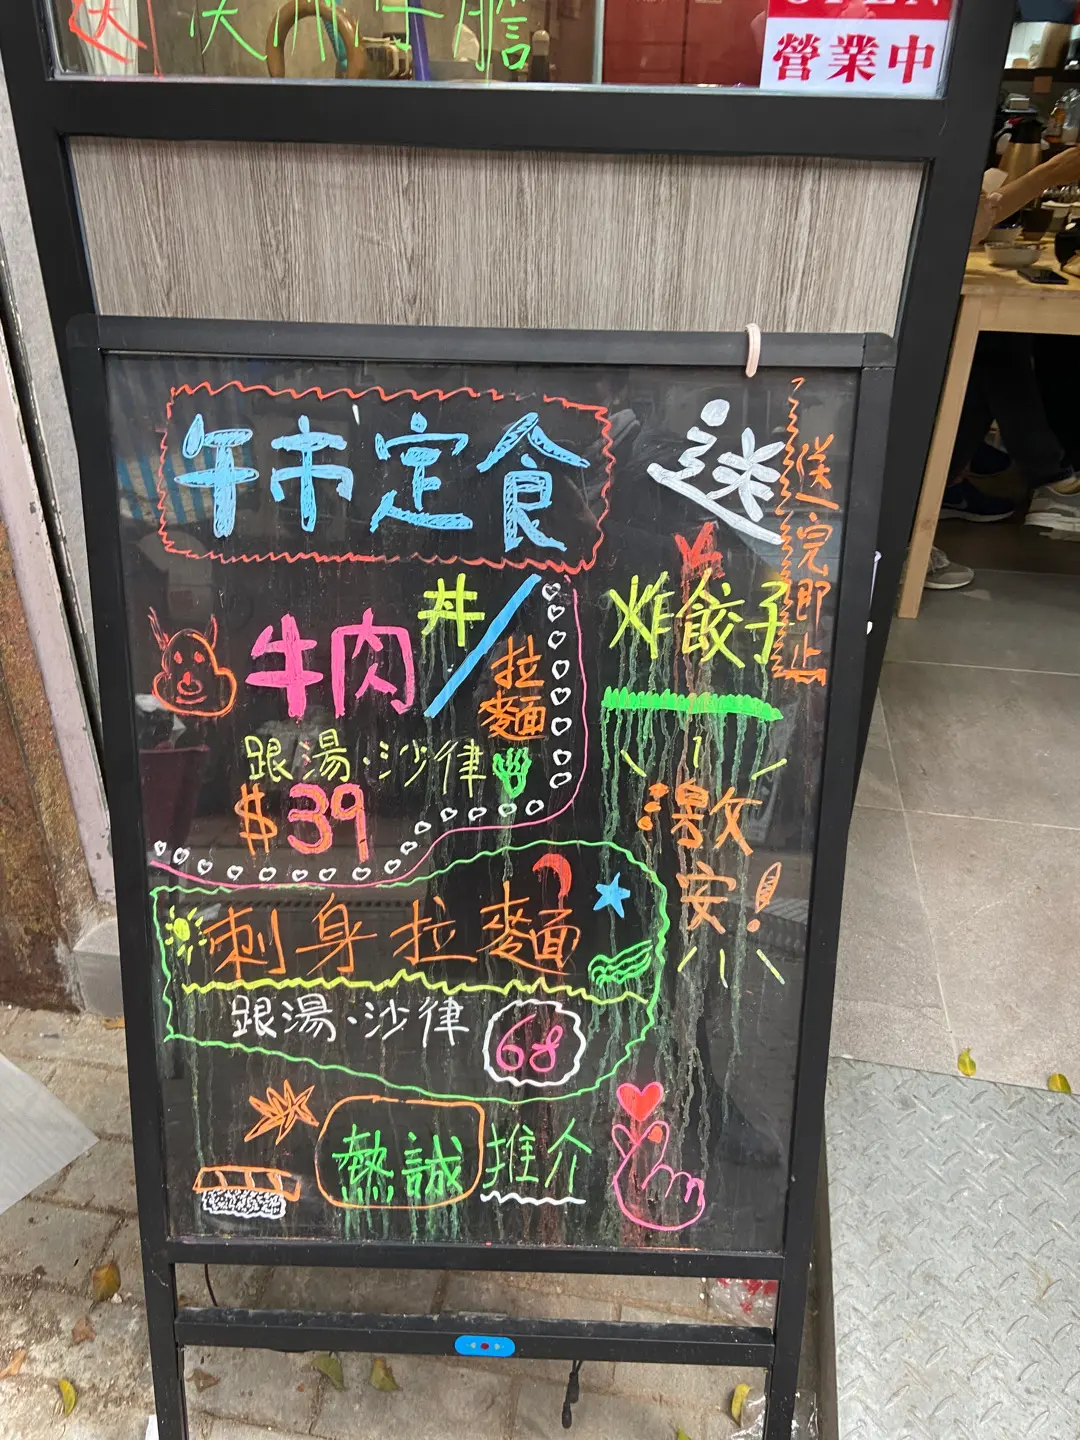 OPEN
營業中
送
午市定食
牛肉丼/拉麵
跟湯·沙律
$39
送
炸餃子
送完即止
激安!
刺身拉麵
跟湯·沙律
68
熱誠推介